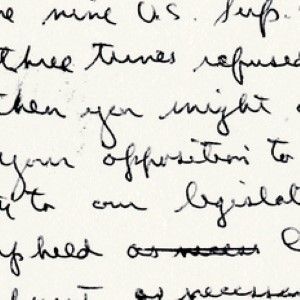 nine U.S. Sup.
three times refused
then you might
your opposition to
to our legislat
upheld as neces
as necessar